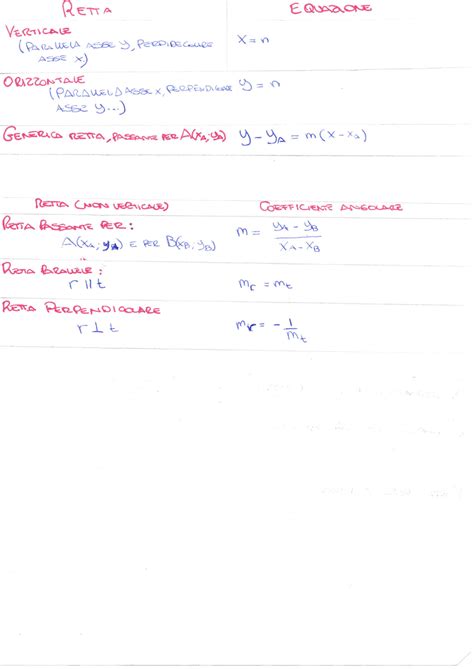 RETTA EQUAZIONE
VERTICALE
(PARALLELA ASSE Y, PERPENDICOLARE x = n
ASSE X)
ORIZZONTALE
(PARALLELA ASSE X, PERPENDICOLARE y = n
ASSE Y...)
GENERICA RETTA, PASSANTE PER A(xA, yA) y - yA = m(x - xA)
RETTA (NON VERTICALE) COEFFICIENTE ANGOLARE
RETTA PASSANTE PER:
A(xA; yA) E PER B(xB, yB) m = yA - yB / xA - xB
RETTA PARALLELE:
r // t mr = mt
RETTA PERPENDICOLARE
r ⊥ t mr = - 1/mt